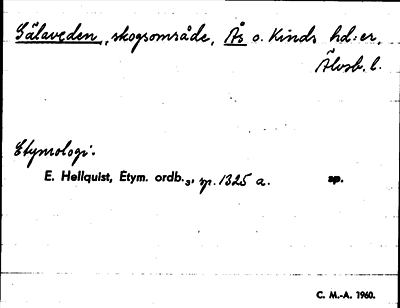 Sälaveden, skogsområde, Ås o. Kinds hd:er,
Älvsb. l.
Etymologi:
E. Hellquist, Etym. ordb.3, sp. 1325 a. sp.
C. M.-A. 1960.